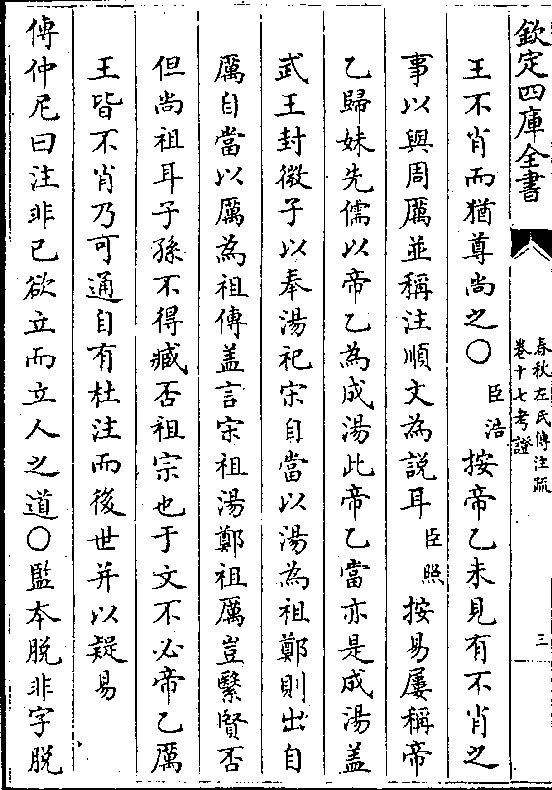 欽定四庫全書
春秋左氏傳注疏
卷十七考證
三
王不肖而猶尊尚之〇臣浩按帝乙未見有不肖之
事以與周厲並稱注順文為說耳臣照按易屢稱帝
乙歸妹先儒以帝乙為成湯此帝乙當亦是成湯盖
武王封微子以奉湯祀宋自當以湯為祖鄭則出自
厲自當以厲為祖傳盖言宋祖湯鄭祖厲豈繫賢否
但尚祖耳子孫不得臧否祖宗也于文不必帝乙厲
王皆不肖乃可通自有杜注而後世并以疑易
傳仲尼曰注非已欲立而立人之道〇監本脫非字脫